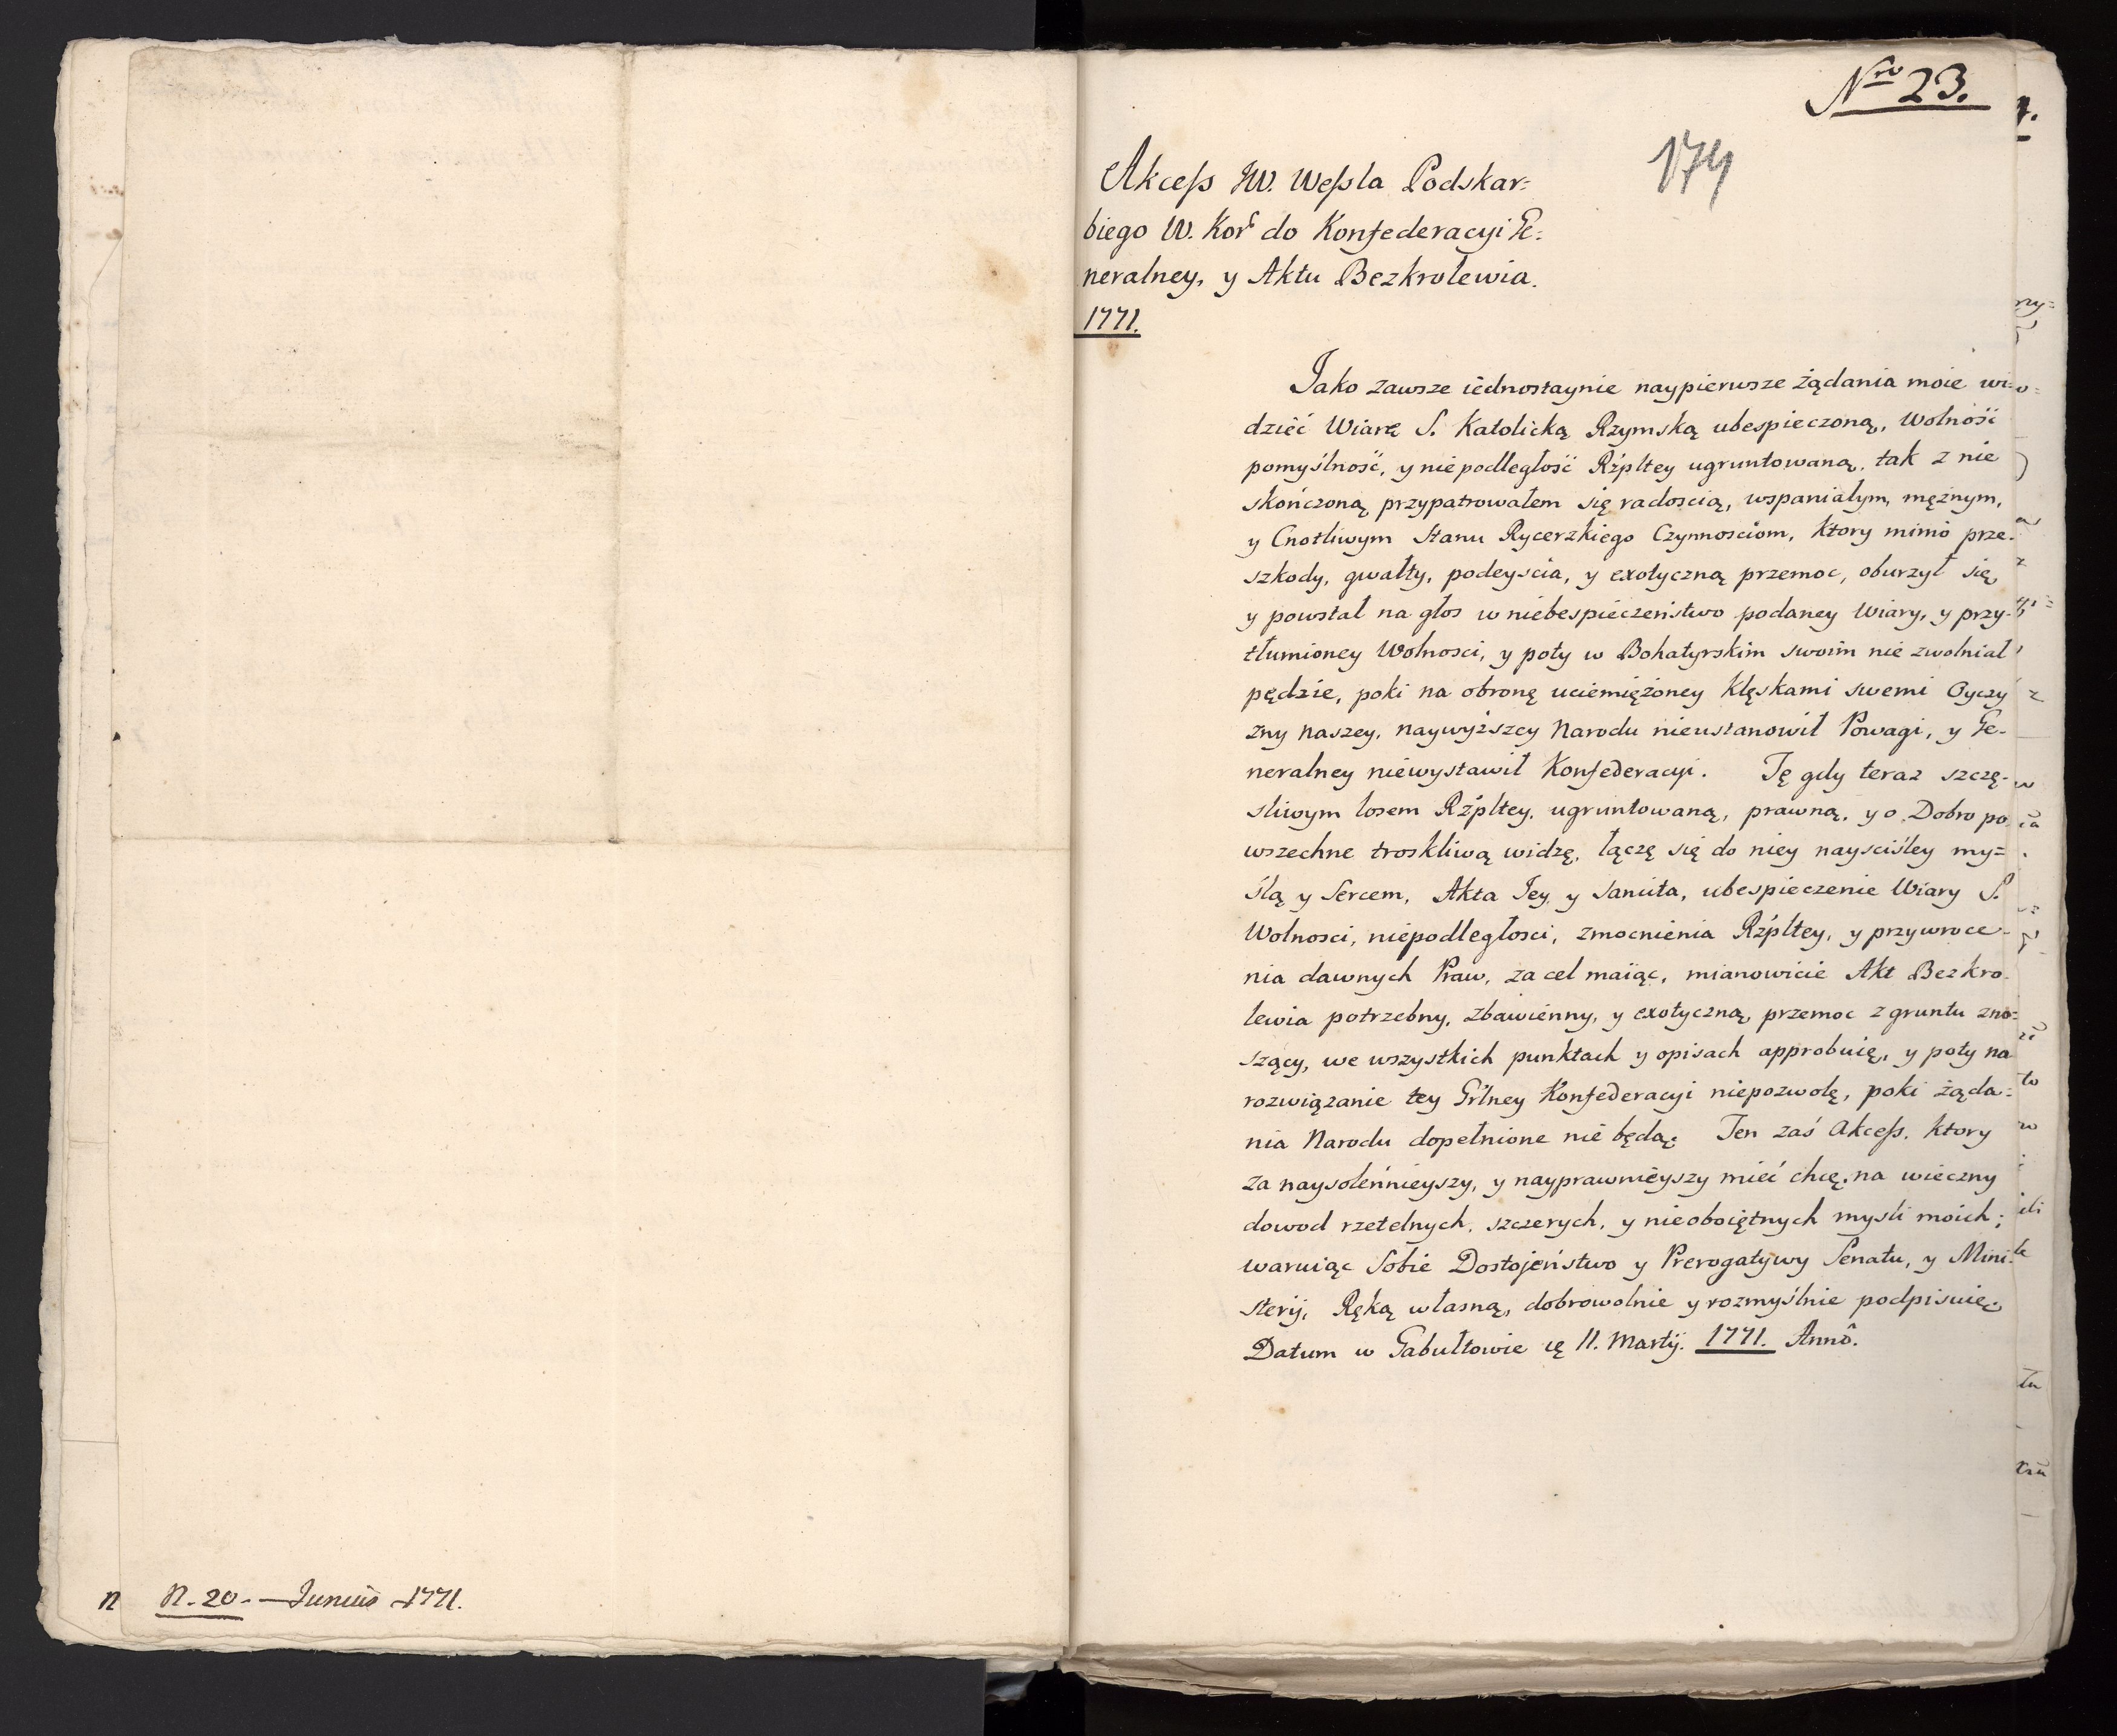 n N. 20. — Junius 1771.
Nro 23.
174
Akceſs JW. Weſsla Podskar=
biego W. Kor. do Konfederacyi Ge=
neralney, y Aktu Bezkrolewia.
1771.
Jako zawsze iednostaynie naypierwsze żądania moie wi=
dzieć Wiarę S. Katolicką Rzymską ubespieczoną, Wolność
pomyślność, y niepodległość Rzpltey ugruntowaną, tak z nie
skończoną przypatrowałem się radoscią, wspaniałym, mężnym,
y Cnotliwym Stanu Rycerzkiego Czynnosciom, ktory mimo prze-
szkody, gwałty, podeyscia, y exotyczną przemoc, oburzył się,
y powstał na głos w niebespieczeństwo podaney Wiary, y przy-
tłumioney Wolnosci, y poty w Bohatyrskim swoim nie zwolniał
pędzie, poki na obronę uciemiężoney klęskami swemi Oyczy
zny naszey, naywyższey Narodu nieustanowił Powagi, y Ge-
neralney niewystawił Konfederacyi. Tę gdy teraz szczę-
sliwym losem Rzpltey, ugruntowaną, prawną, y o Dobro po
wszechne troskliwą widzę, łączę się do niey nayściśley my=
ślą y Sercem, Akta Jey, y Sancita, ubespieczenie Wiary S.
Wolnosci, niepodległosci, zmocnienia Rzpltey, y przywroce-
nia dawnych Praw, za cel maiąc, mianowicie Akt Bezkro-
lewia potrzebny, zbawienny, y exotyczną przemoc z gruntu zno=
szący, we wszystkich punktach y opisach approbuię, y poty na
rozwiązanie tey Grlney Konfederacyi niepozwolę, poki żąda=
nia Narodu dopełnione nie będą. Ten zaś Akceſs, ktory
za naysolenńieyszy, y nayprawnieyszy mieć chcę, na wieczny
dowod rzetelnych, szczerych, y nieoboiętnych mysli moich;
waruiąc Sobie Dostojeństwo y Prerogatywy Senatu, y Mini-
sterij, Ręką własną, dobrowolnie y rozmyślnie podpisuię.
Datum w Gabułtowie 11. Martij. 1771. Annô.